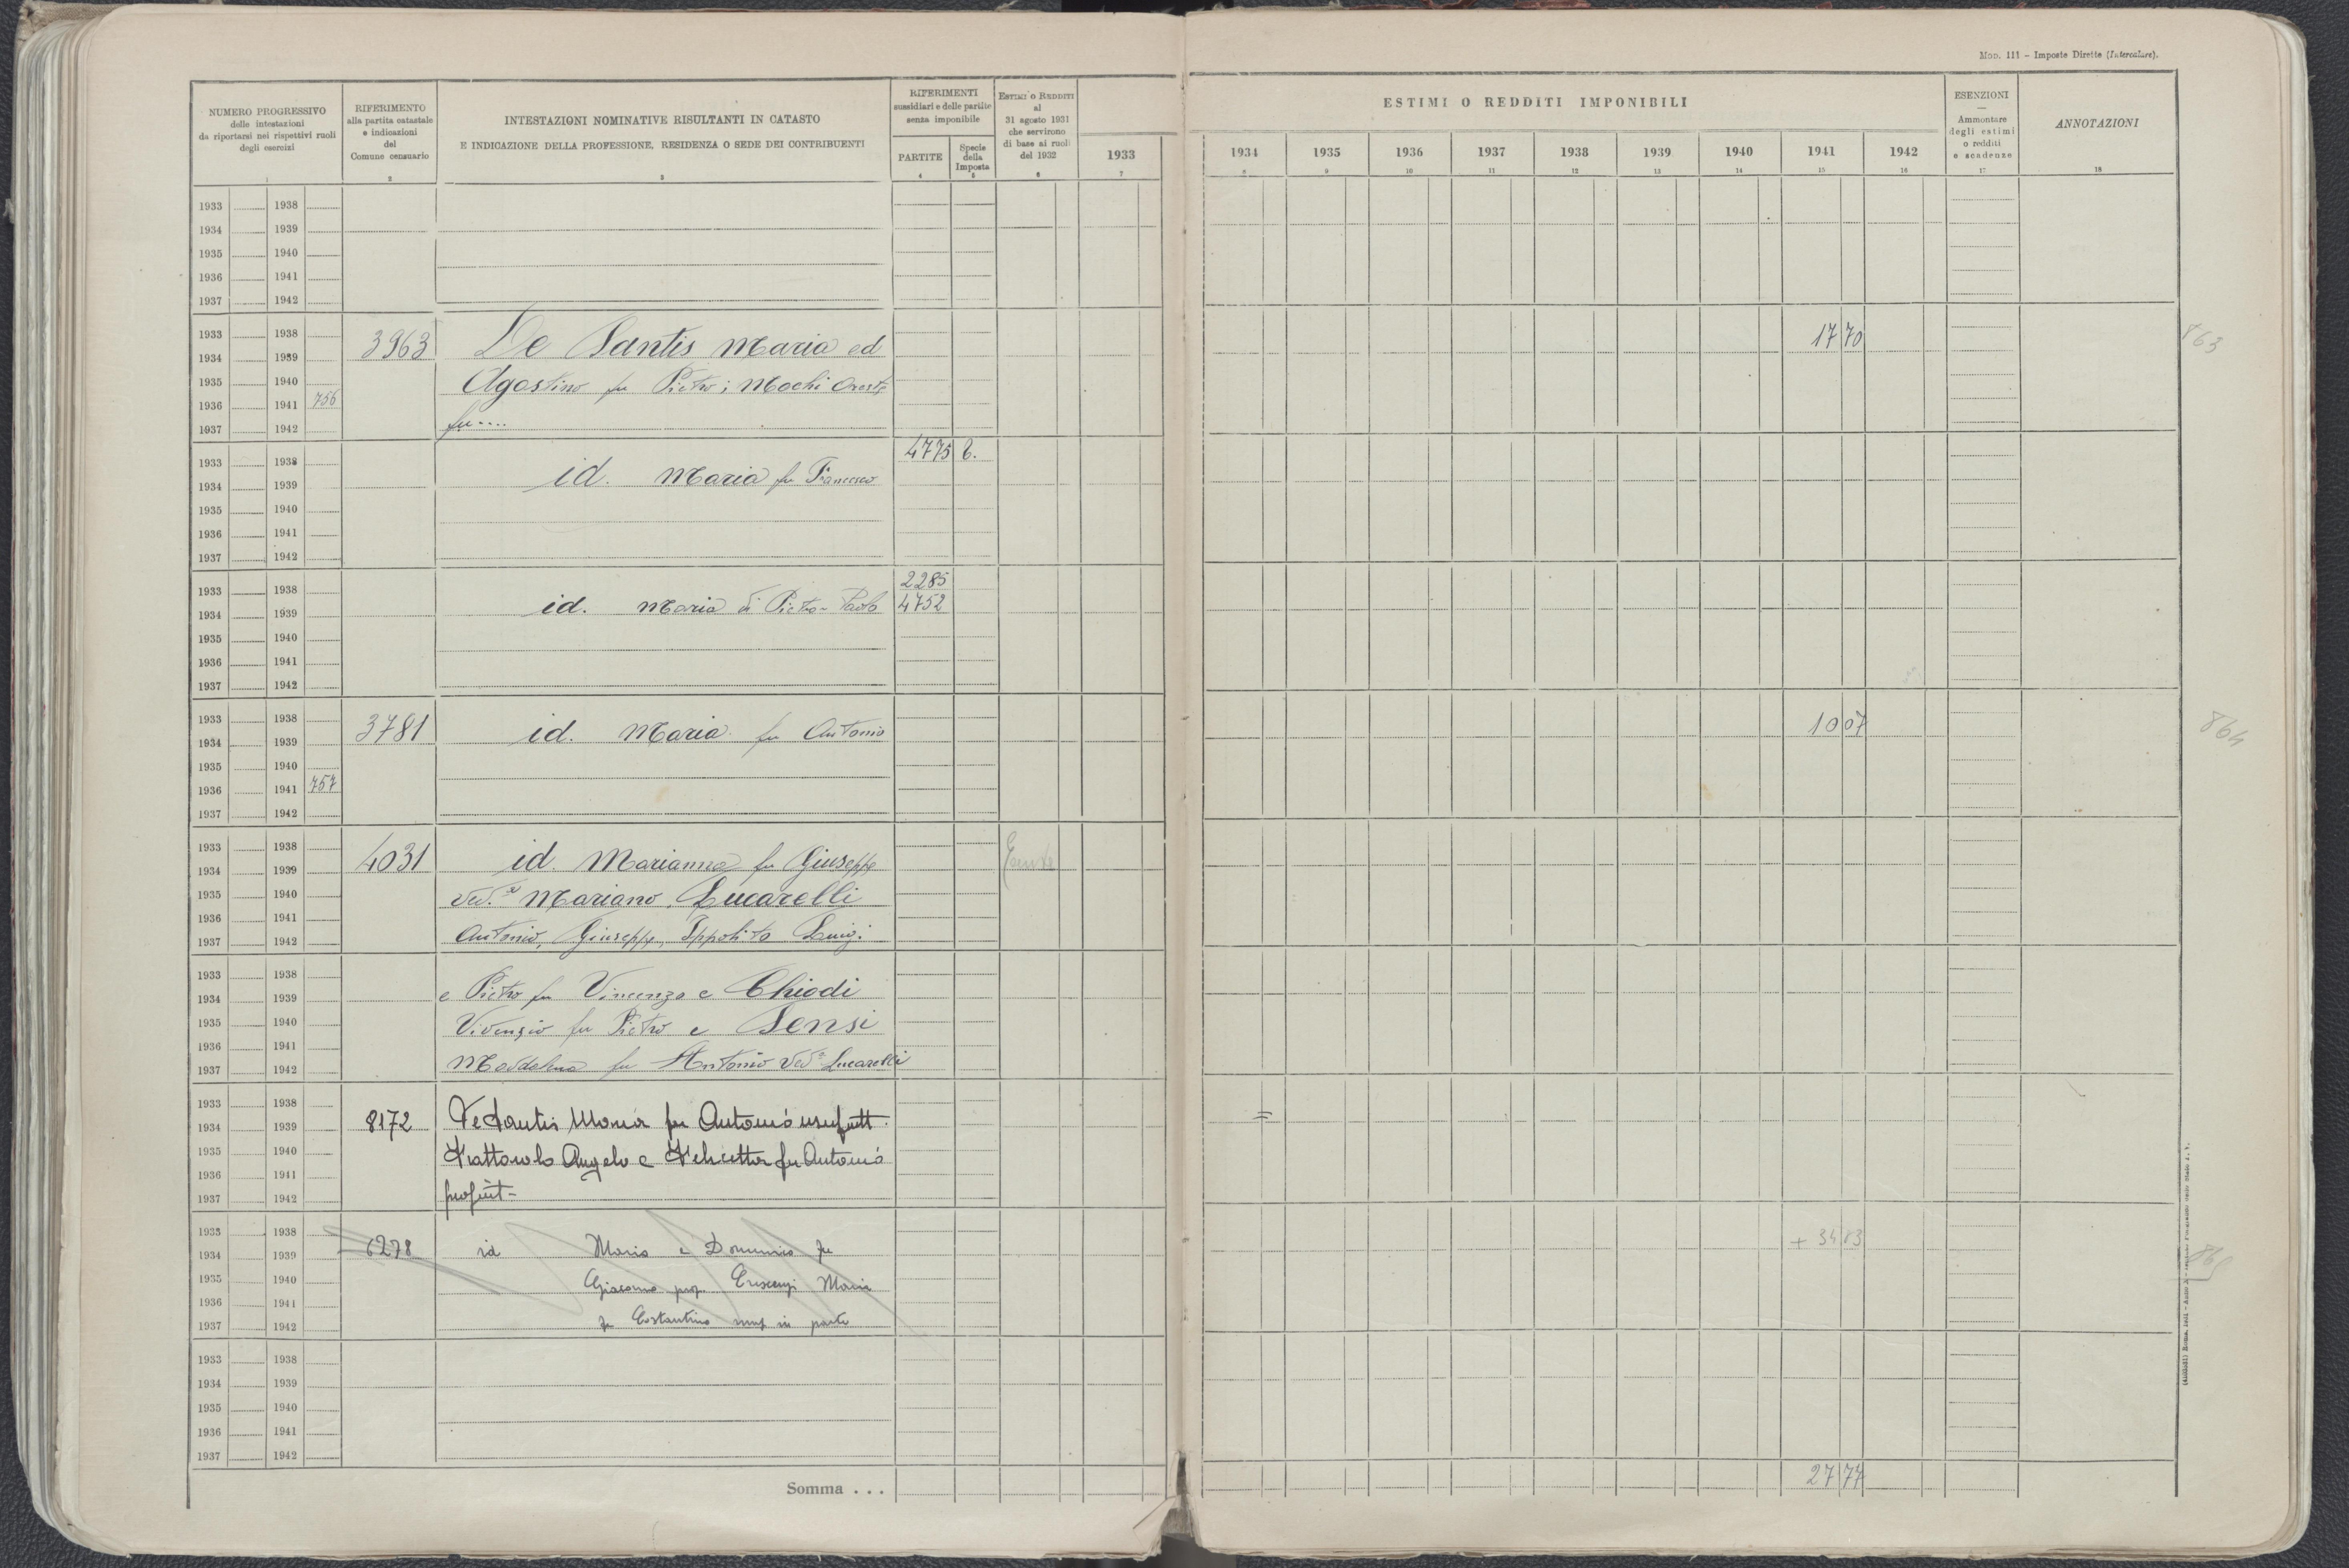 Mod. 111 – Imposte Dirette (Intercalare).
NUMERO PROGRESSIVO
delle intestazioni
da riportarsi nei rispettivi ruoli
degli esercizi
1
RIFERIMENTO
alla partita catastale
e indicazioni
del
Comune censuario
2
INTESTAZIONI NOMINATIVE RISULTANTI IN CATASTO
E INDICAZIONE DELLA PROFESSIONE, RESIDENZA O SEDE DEI CONTRIBUENTI
3
RIFERIMENTI
sussidiari e delle partite
senza imponibile
PARTITE
4
Specie
della
Imposta
5
Estimi o Redditi
al
31 agosto 1931
che servirono
di base ai ruoli
del 1932
6
1933
7
ESTIMI O REDDITI IMPONIBILI
1934 1935 1936 1937 1938 1939 1940 1941 1942
8 9 10 11 12 13 14 15 16
ESENZIONI
—
Ammontare
degli estimi
o redditi
e scadenze
17
ANNOTAZIONI
18
1933 1938
1934 1939
1935 1940
1936 1941
1937 1942
1933 1938 3963 De Santis Maria ed 17 70 863
1934 1939
1935 1940 Agostino fu Pietro; Mochi Oreste
1936 1941 756
1937 1942 fu....
4775 b.
1933 1938 id. Maria fu Francesco
1934 1939
1935 1940
1936 1941
1937 1942
2285
1933 1938 id. Maria di Pietro-Paolo 4752
1934 1939
1935 1940
1936 1941
1937 1942
1933 1938 3781 id. Maria fu Antonio 10 07 864
1934 1939
1935 1940
1936 1941 757
1937 1942
1933 1938 4031 id. Marianna fu Giuseppe
1934 1939
1935 1940 Ved.a Mariano, Lucarelli
1936 1941
1937 1942 Antonio, Giuseppe, Ippolito Luigi
1933 1938
1934 1939 e Pietro fu Vincenzo e Chiodi
1935 1940 Vivenzio fu Pietro e Sensi
1936 1941
1937 1942 Maddalena fu Antonio Ved.a Lucarelli
1933 1938
1934 1939 8172 De Santis Maria fu Antonio usufrutt. =
1935 1940 Angelo e fu Antonio
1936 1941
1937 1942
1933 1938
1934 1939 6278 id Maria e Domenico fu + 34 83 865
1935 1940 Giacomo prop. Crescenzi Maria
1936 1941
1937 1942 fu Costantino usuf in parte
1933 1938
1934 1939
1935 1940
1936 1941
1937 1942
Somma . . . 27 77